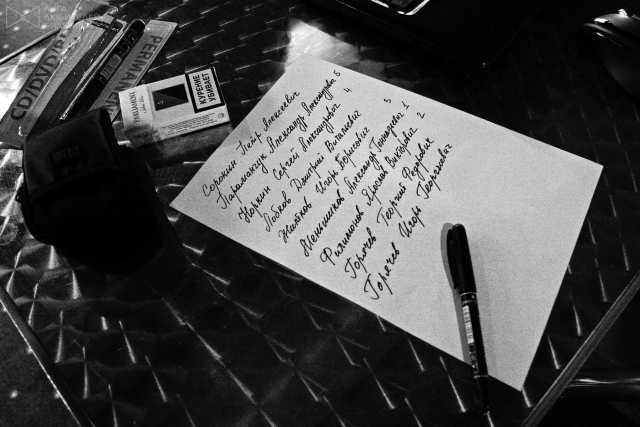 CD/DVD/
PERMAN
PARLIAMENT
КУРЕНИЕ
УБИВАЕТ
Сорокин Пётр Алексеевич
Парамащук Александр Александрович 5
Норкин Сергей Александрович 4
Лобков Дмитрий Витальевич
Житков Игорь Борисович 3
Меньшиков Александр Геннадьевич 1
Филимонов Ярослав Викторович 2
Горячев Георгий Федорович
Горячев Игорь Георгиевич